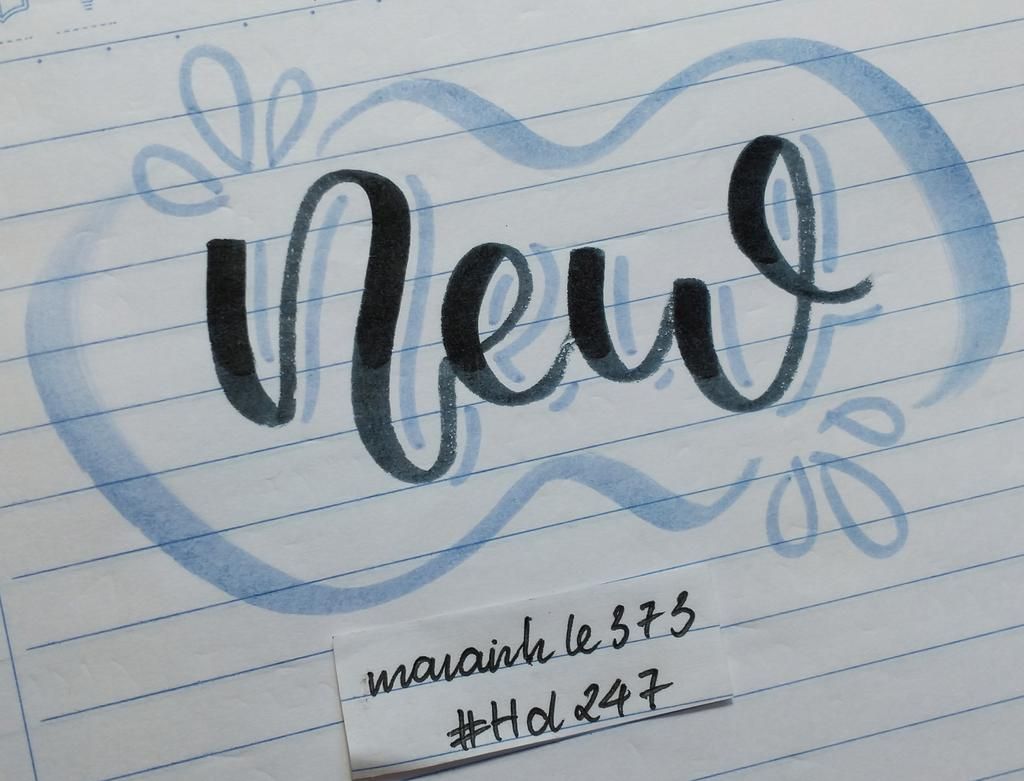 new
maiainh le 373
#Hd 247